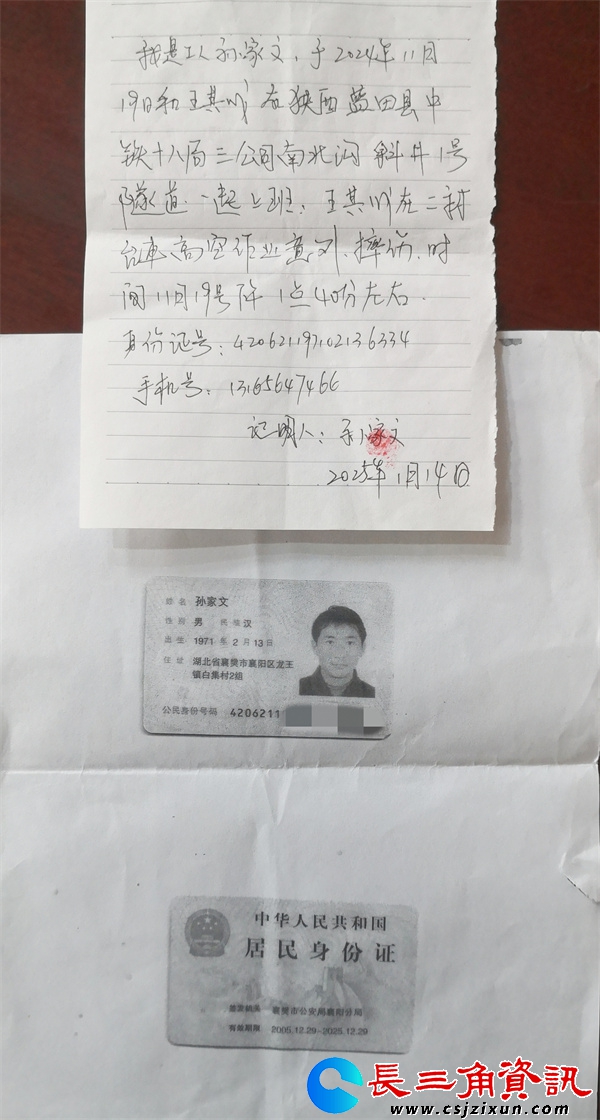 我是工人孙家文,于2024年11月
19日和王其川在狭西蓝田县中
铁十八局三公司南北沟斜井1号
隧道一起上班,王其川在二衬
台車高空作业意外摔伤.时
间11月19号 1点40份左右.
身份证号:420621197102136334
手机号:13165647466
证明人:孙家文
2025年1月14日
姓名 孙家文
性别 男 民族 汉
出生 1971 年 2 月 13 日
住址 湖北省襄樊市襄阳区龙王
镇白集村2组
公民身份号码 4206211
中华人民共和国
居民身份证
签发机关 襄樊市公安局襄阳分局
有效期限 2005.12.29-2025.12.29
長三角資訊
www.csjzixun.com